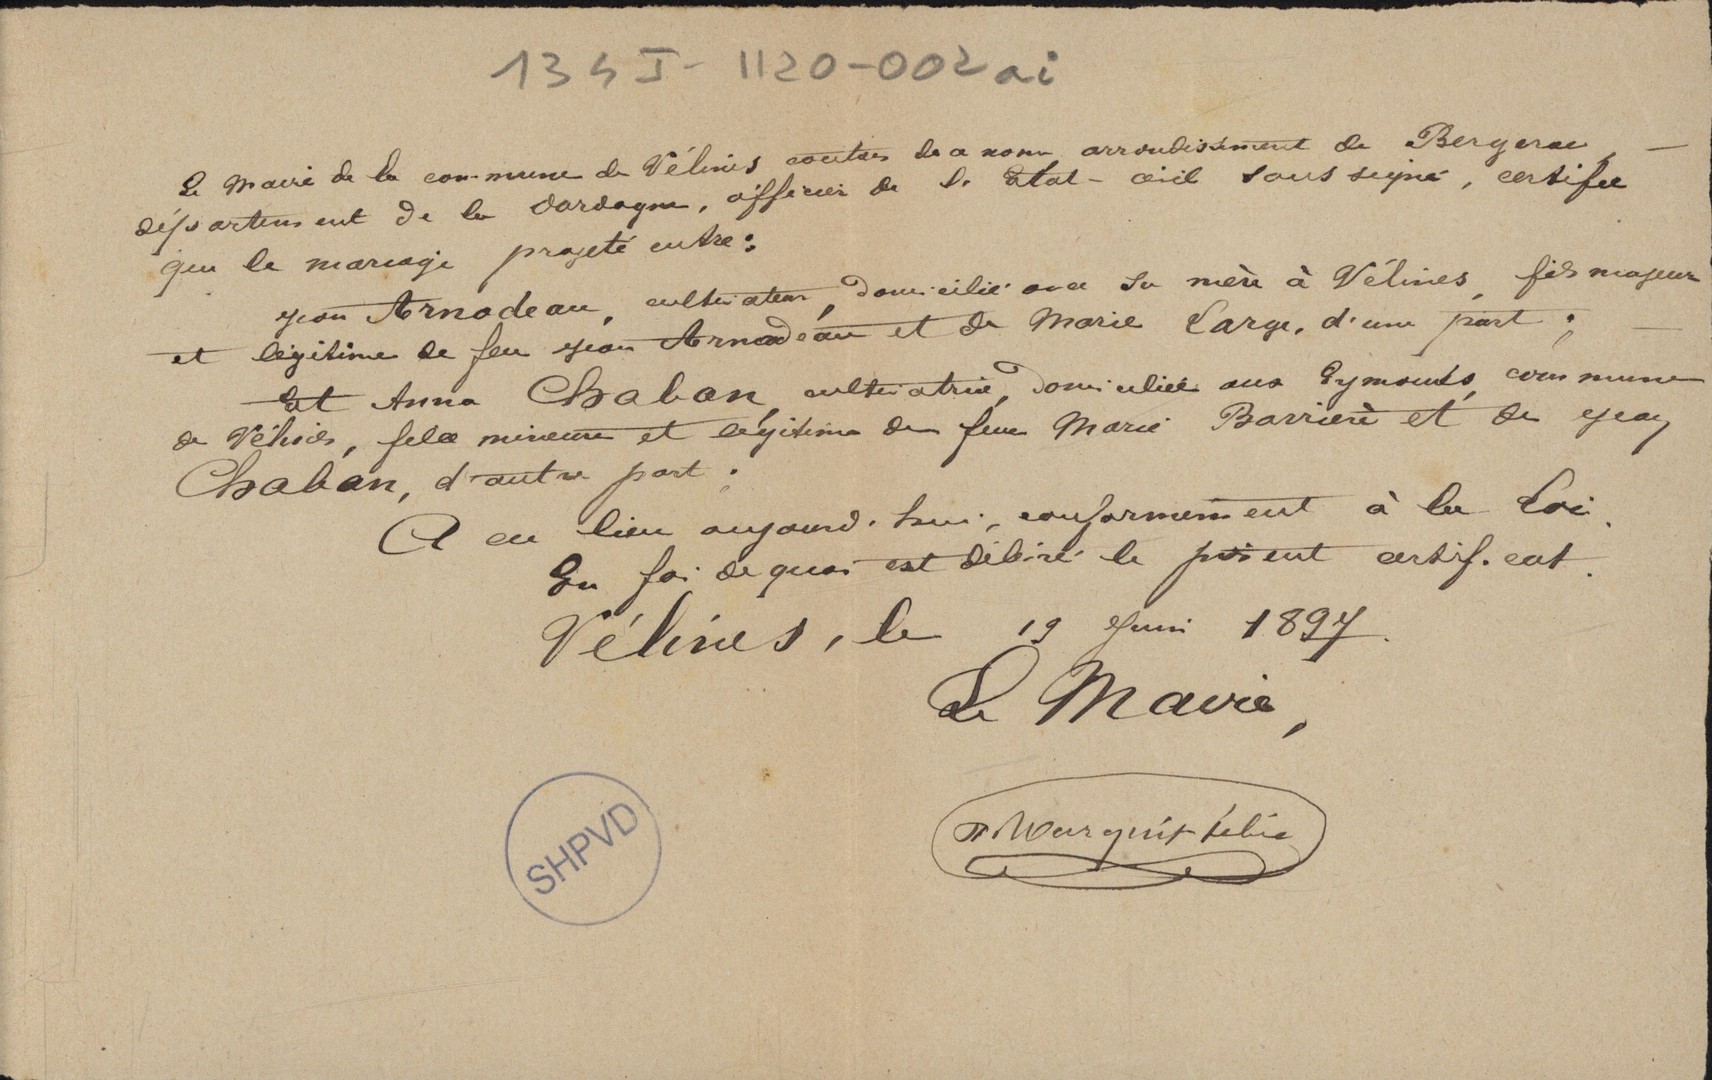 134 I - 1120-002 ai
Le Maire de la commune de Vélines canton de ce nom, arrondissement de Bergerac,
département de la Dordogne, officier de l'état-civil soussigné, certifie
que le mariage projeté entre :
Jean Arnodeau, cultivateur, domicilié avec sa mère à Vélines, fils majeur
et légitime de feu Jean Arnodeau et de Marie Large, d'une part ;
Et Anna Chaban, cultivatrice, domiciliée aux Eymonds, commune
de Vélines, fille mineure et légitime de feue Marie Barrière et de Jean
Chaban, d'autre part ;
A eu lieu aujourd'hui, conformément à la Loi.
En foi de quoi est délivré le présent certificat.
Vélines, le 19 Juin 1897.
Le Maire,
SHPVD